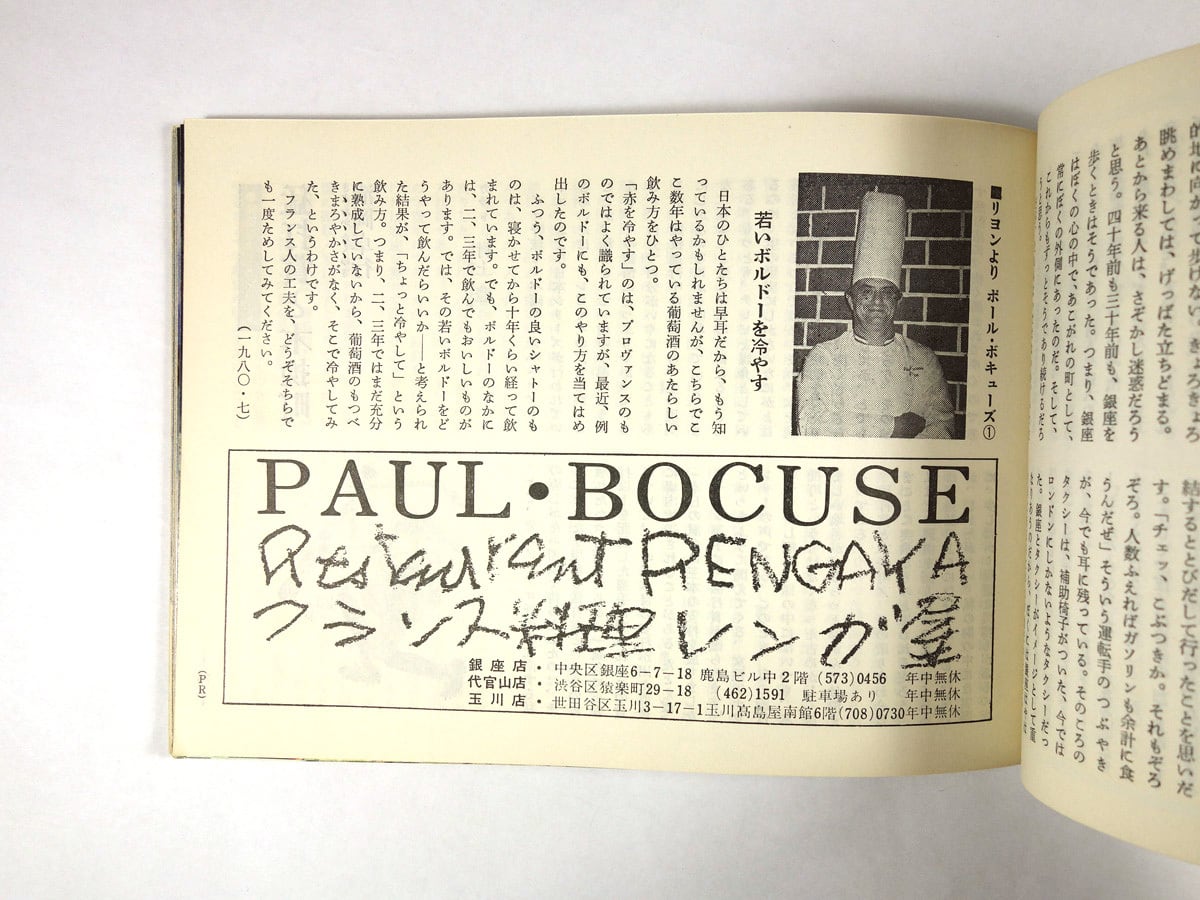 ■リヨンより ポール・ボキューズ①
若いボルドーを冷やす
日本のひとたちは早耳だから、もう知
っているかもしれませんが、こちらでこ
こ数年はやっている葡萄酒のあたらしい
飲み方をひとつ。
「赤を冷やす」のは、プロヴァンスのも
のではよく識られていますが、最近、例
のボルドーにも、このやり方を当てはめ
出したのです。
ふつう、ボルドーの良いシャトーのも
のは、寝かせてから十年くらい経って飲
まれています。でも、ボルドーのなかに
は、二、三年で飲んでもおいしいものが
あります。では、その若いボルドーをど
うやって飲んだらいいか――と考えられ
た結果が、「ちょっと冷やして」という
飲み方。つまり、二、三年ではまだ充分
に熟成していないから、葡萄酒のもつべ
きまろやかさがなく、そこで冷やしてみ
た、というわけです。
フランス人の工夫を、どうぞそちらで
も一度ためしてみてください。
(一九八〇・七)
PAUL・BOCUSE
Restaurant RENGAYA
フランス料理レンガ屋
銀座店・中央区銀座6-7-18 鹿島ビル中2階 (573)0456 年中無休
代官山店・渋谷区猿楽町29-18 (462)1591 駐車場あり 年中無休
玉川店・世田谷区玉川3-17-1玉川髙島屋南館6階(708)0730年中無休
(PR)
的地に向かって歩けない。きょろきょろ
眺めまわしては、げっぱた立ちどまる。
あとから来る人は、さぞかし迷惑だろう
と思う。四十年前も三十年前も、銀座を
歩くときはそうであった。つまり、銀座
はぼくの心の中で、あこがれの町として、
常にぼくの外側にあったのだ。そして、
これからもずっとそうであり続けるだろ
結するとびだして行ったことを思いだ
す。「チェッ、こぶつきか。それもぞろ
ぞろ。人数ふえればガソリンも余計に食
うんだぜ」そういう運転手のつぶやき
が、今でも耳に残っている。そのころの
タクシーは、補助椅子がついた、今では
ロンドンにしかないようなタクシーだっ
た。銀座とタクシーがイメージとして重